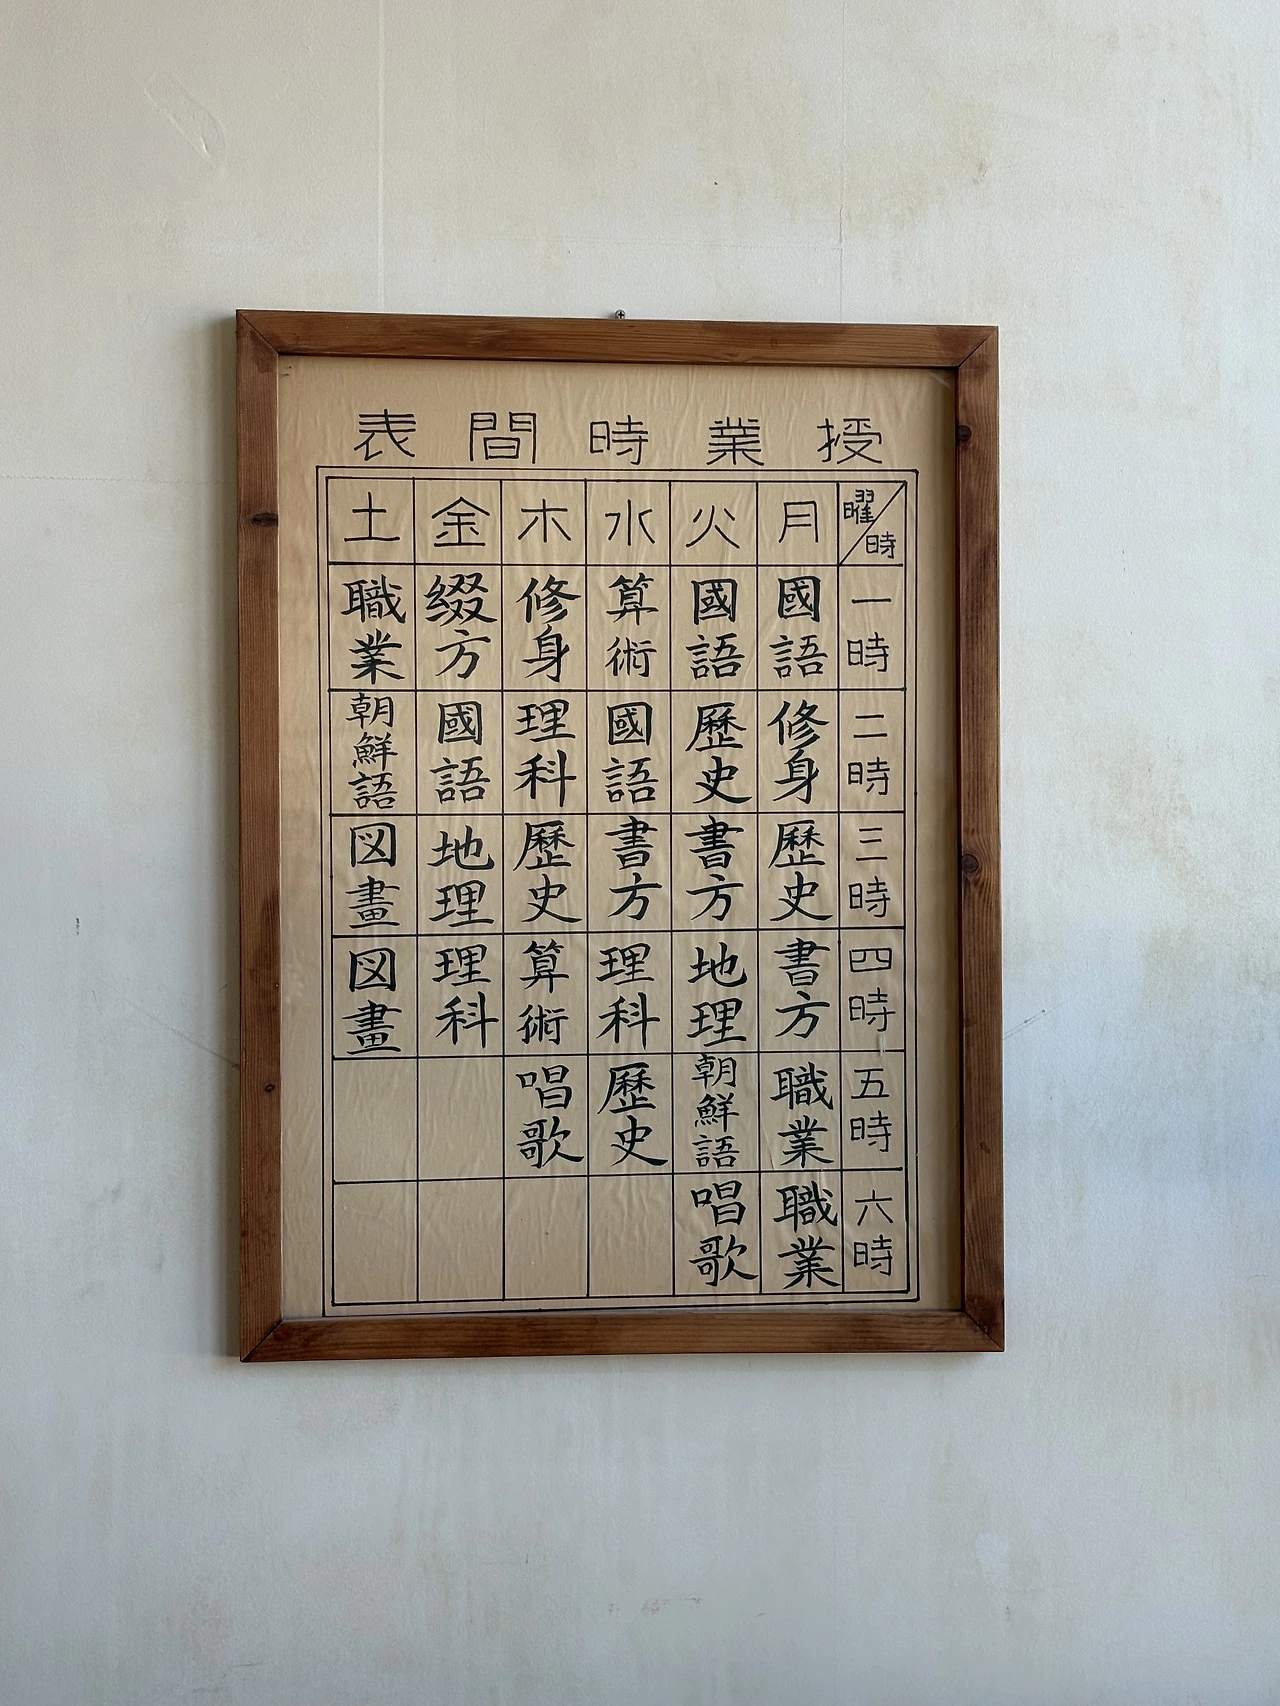 授業時間表
曜/時 月 火 水 木 金 土
一時 國語 國語 算術 修身 綴方 職業
二時 修身 歷史 國語 理科 國語 朝鮮語
三時 歷史 書方 書方 歷史 地理 図畫
四時 書方 地理 理科 算術 理科 図畫
五時 職業 朝鮮語 歷史 唱歌
六時 職業 唱歌